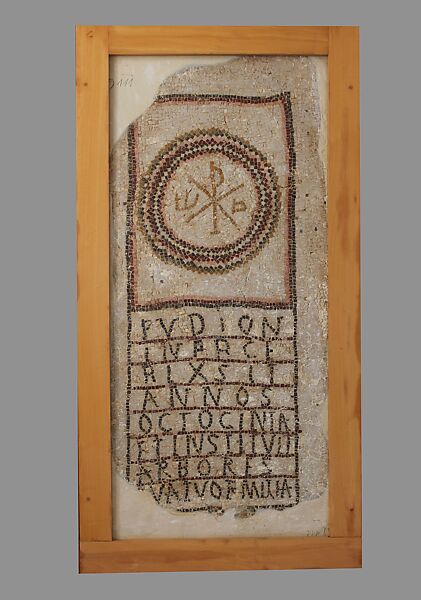 ω A
PVDION
IN PACE
BIXSIT
ANNOS
OCTOGINTA
ET INSTITVIT
ARBORES
QVATVOR MILIA